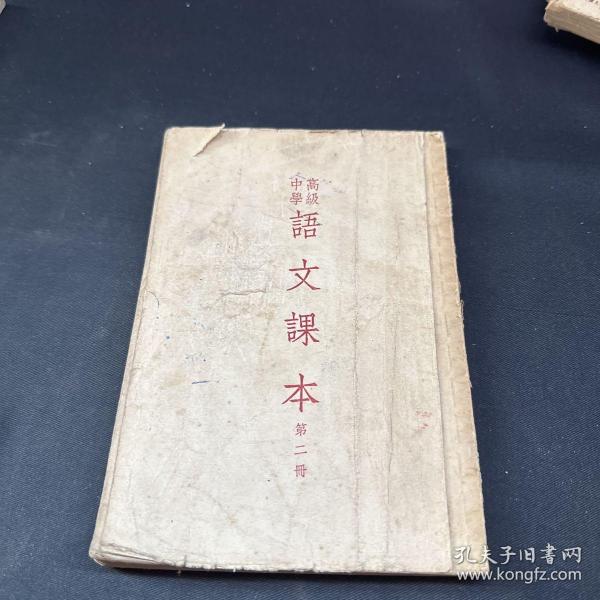 高級
中學
語文課本
第二冊
孔夫子旧書网
www.kongfz.com